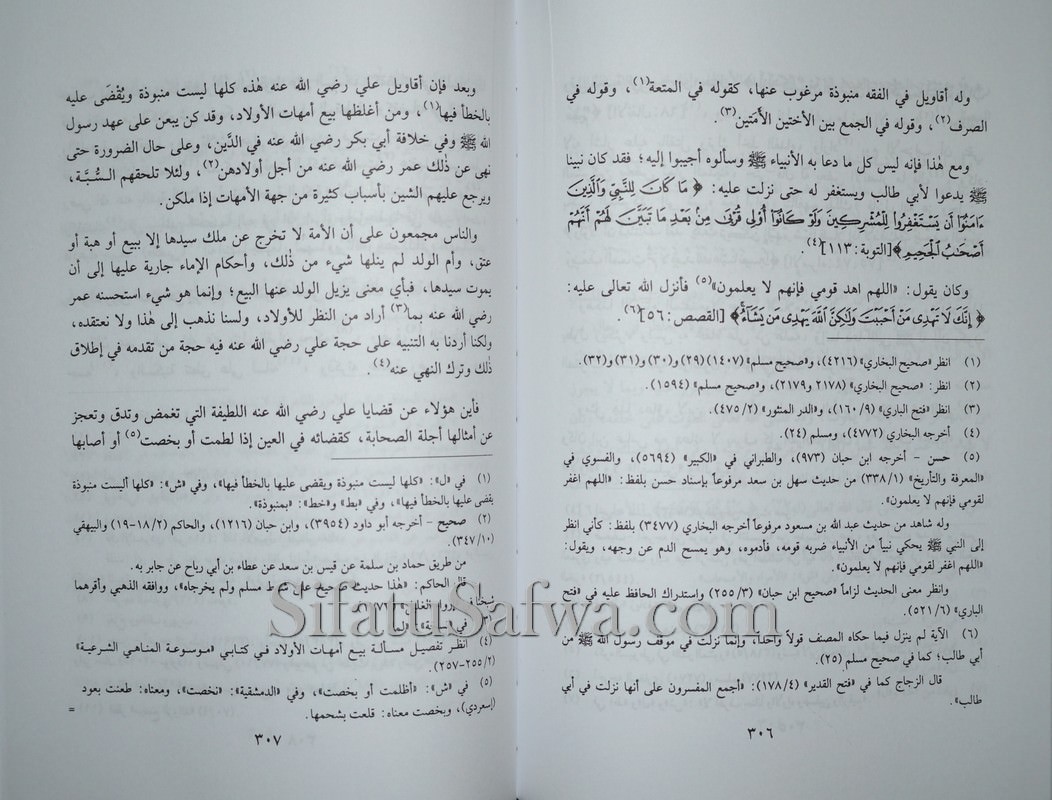 وله أقاويل في الفقه منبوذة مرغوب عنها، كقوله في المتعة(١)، وقوله في
الصرف(٢)، وقوله في الجمع بين الأختين الأمَتين(٣).
ومع هٰذا فإنه ليس كل ما دعا به الأنبياء ﷺ وسألوه أجيبوا إليه؛ فقد كان نبينا
ﷺ يدعوا لأبي طالب ويستغفر له حتى نزلت عليه: ﴿مَا كَانَ لِلنَّبِيِّ وَالَّذِينَ
ءَامَنُوٓا أَن يَسْتَغْفِرُوا لِلْمُشْرِكِينَ وَلَوْ كَانُوٓا أُوْلِى قُرْبَىٰ مِنۢ بَعْدِ مَا تَبَيَّنَ لَهُمْ أَنَّهُمْ
أَصْحَٰبُ الْجَحِيمِ﴾ [التوبة: ١١٣](٤).
وكان يقول: «اللهم اهد قومي فإنهم لا يعلمون»(٥) فأنزل الله تعالى عليه:
﴿إِنَّكَ لَا تَهْدِى مَنْ أَحْبَبْتَ وَلَٰكِنَّ اللَّهَ يَهْدِى مَن يَشَآءُ﴾ [القصص: ٥٦](٦).
(١) انظر «صحيح البخاري» (٤٢١٦)، و«صحيح مسلم» (١٤٠٧) (٢٩) و(٣٠) و(٣١) و(٣٢).
(٢) انظر: «صحيح البخاري» (٢١٧٨ و٢١٧٩)، و«صحيح مسلم» (١٥٩٤).
(٣) انظر «فتح الباري» (٩/ ١٦٠)، و«الدر المنثور» (٢/ ٤٧٥).
(٤) أخرجه البخاري (٤٧٧٢)، ومسلم (٢٤).
(٥) حسن - أخرجه ابن حبان (٩٧٣)، والطبراني في «الكبير» (٥٦٩٤)، والفسوي في
«المعرفة والتأريخ» (١/ ٣٣٨) من حديث سهل بن سعد مرفوعاً بإسناد حسن بلفظ: «اللهم اغفر
لقومي فإنهم لا يعلمون».
وله شاهد من حديث عبد الله بن مسعود مرفوعاً أخرجه البخاري (٣٤٧٧) بلفظ: كأني انظر
إلى النبي ﷺ يحكي نبياً من الأنبياء ضربه قومه، فأدموه، وهو يمسح الدم عن وجهه، ويقول:
«اللهم اغفر لقومي فإنهم لا يعلمون».
وانظر معنى الحديث لزاماً «صحيح ابن حبان» (٣/ ٢٥٥) واستدراك الحافظ عليه في «فتح
الباري» (٦/ ٥٢١).
(٦) الآية لم ينزل فيما حكاه المصنف قولاً واحداً، وإنما نزلت في موقف رسول الله ﷺ من
أبي طالب؛ كما في صحيح مسلم (٢٥).
قال الزجاج كما في «فتح القدير» (٤/ ١٧٨): «أجمع المفسرون على أنها نزلت في أبي
طالب».
٣٠٦
وبعد فإن أقاويل علي رضي الله عنه هٰذه كلها ليست منبوذة ويُقْضَى عليه
بالخطأ فيها(١)، ومن أغلظها بيع أمهات الأولاد، وقد كن يبعن على عهد رسول
الله ﷺ وفي خلافة أبي بكر رضي الله عنه في الدَّين، وعلى حال الضرورة حتى
نهى عن ذٰلك عمر رضي الله عنه من أجل أولادهن(٢)، ولئلا تلحقهم السُّبَّة،
ويرجع عليهم الشين بأسباب كثيرة من جهة الأمهات إذا ملكن.
والناس مجمعون على أن الأمة لا تخرج عن ملك سيدها إلا ببيع أو هبة أو
عتق، وأم الولد لم ينلها شيء من ذٰلك، وأحكام الإماء جارية عليها إلى أن
يموت سيدها، فبأي معنى يزيل الولد عنها البيع؛ وإنما هو شيء استحسنه عمر
رضي الله عنه بما(٣) أراد من النظر للأولاد، ولسنا نذهب إلى هٰذا ولا نعتقده،
ولكنا أردنا به التنبيه على حجة علي رضي الله عنه فيه حجة من تقدمه في إطلاق
ذٰلك وترك النهي عنه(٤).
فأين هؤلاء عن قضايا علي رضي الله عنه اللطيفة التي تغمض وتدق وتعجز
عن أمثالها أجلة الصحابة، كقضائه في العين إذا لطمت أو بخصت(٥) أو أصابها
(١) في «ل»: «كلها ليست منبوذة ويقضى عليها بالخطأ فيها»، وفي «ش»: «كلها أليست منبوذة
يقضى عليها بالخطأ فيها»، وفي «بط» و«خط»: «بمنبوذة».
(٢) صحيح - أخرجه أبو داود (٣٩٥٤)، وابن حبان (١٢١٦)، والحاكم (٢/ ١٨-١٩) والبيهقي
(١٠/ ٣٤٧).
من طريق حماد بن سلمة عن قيس بن سعد عن عطاء بن أبي رباح عن جابر به.
قال الحاكم: «هٰذا حديث صحيح على شرط مسلم ولم يخرجاه»، ووافقه الذهبي وأقرهما
(٤) انظر تفصيل مسألة بيع أمهات الأولاد في كتابي «موسوعة المناهي الشرعية»
(٢/ ٢٥٥-٢٥٧).
(٥) في «ش»: «أظلمت أو بخصت»، وفي «الدمشقية»: «نخصت»، ومعناه: طعنت بعود
(إسعردي)، وبخصت معناه: قلعت بشحمها. =
٣٠٧
SifatuSafwa.com